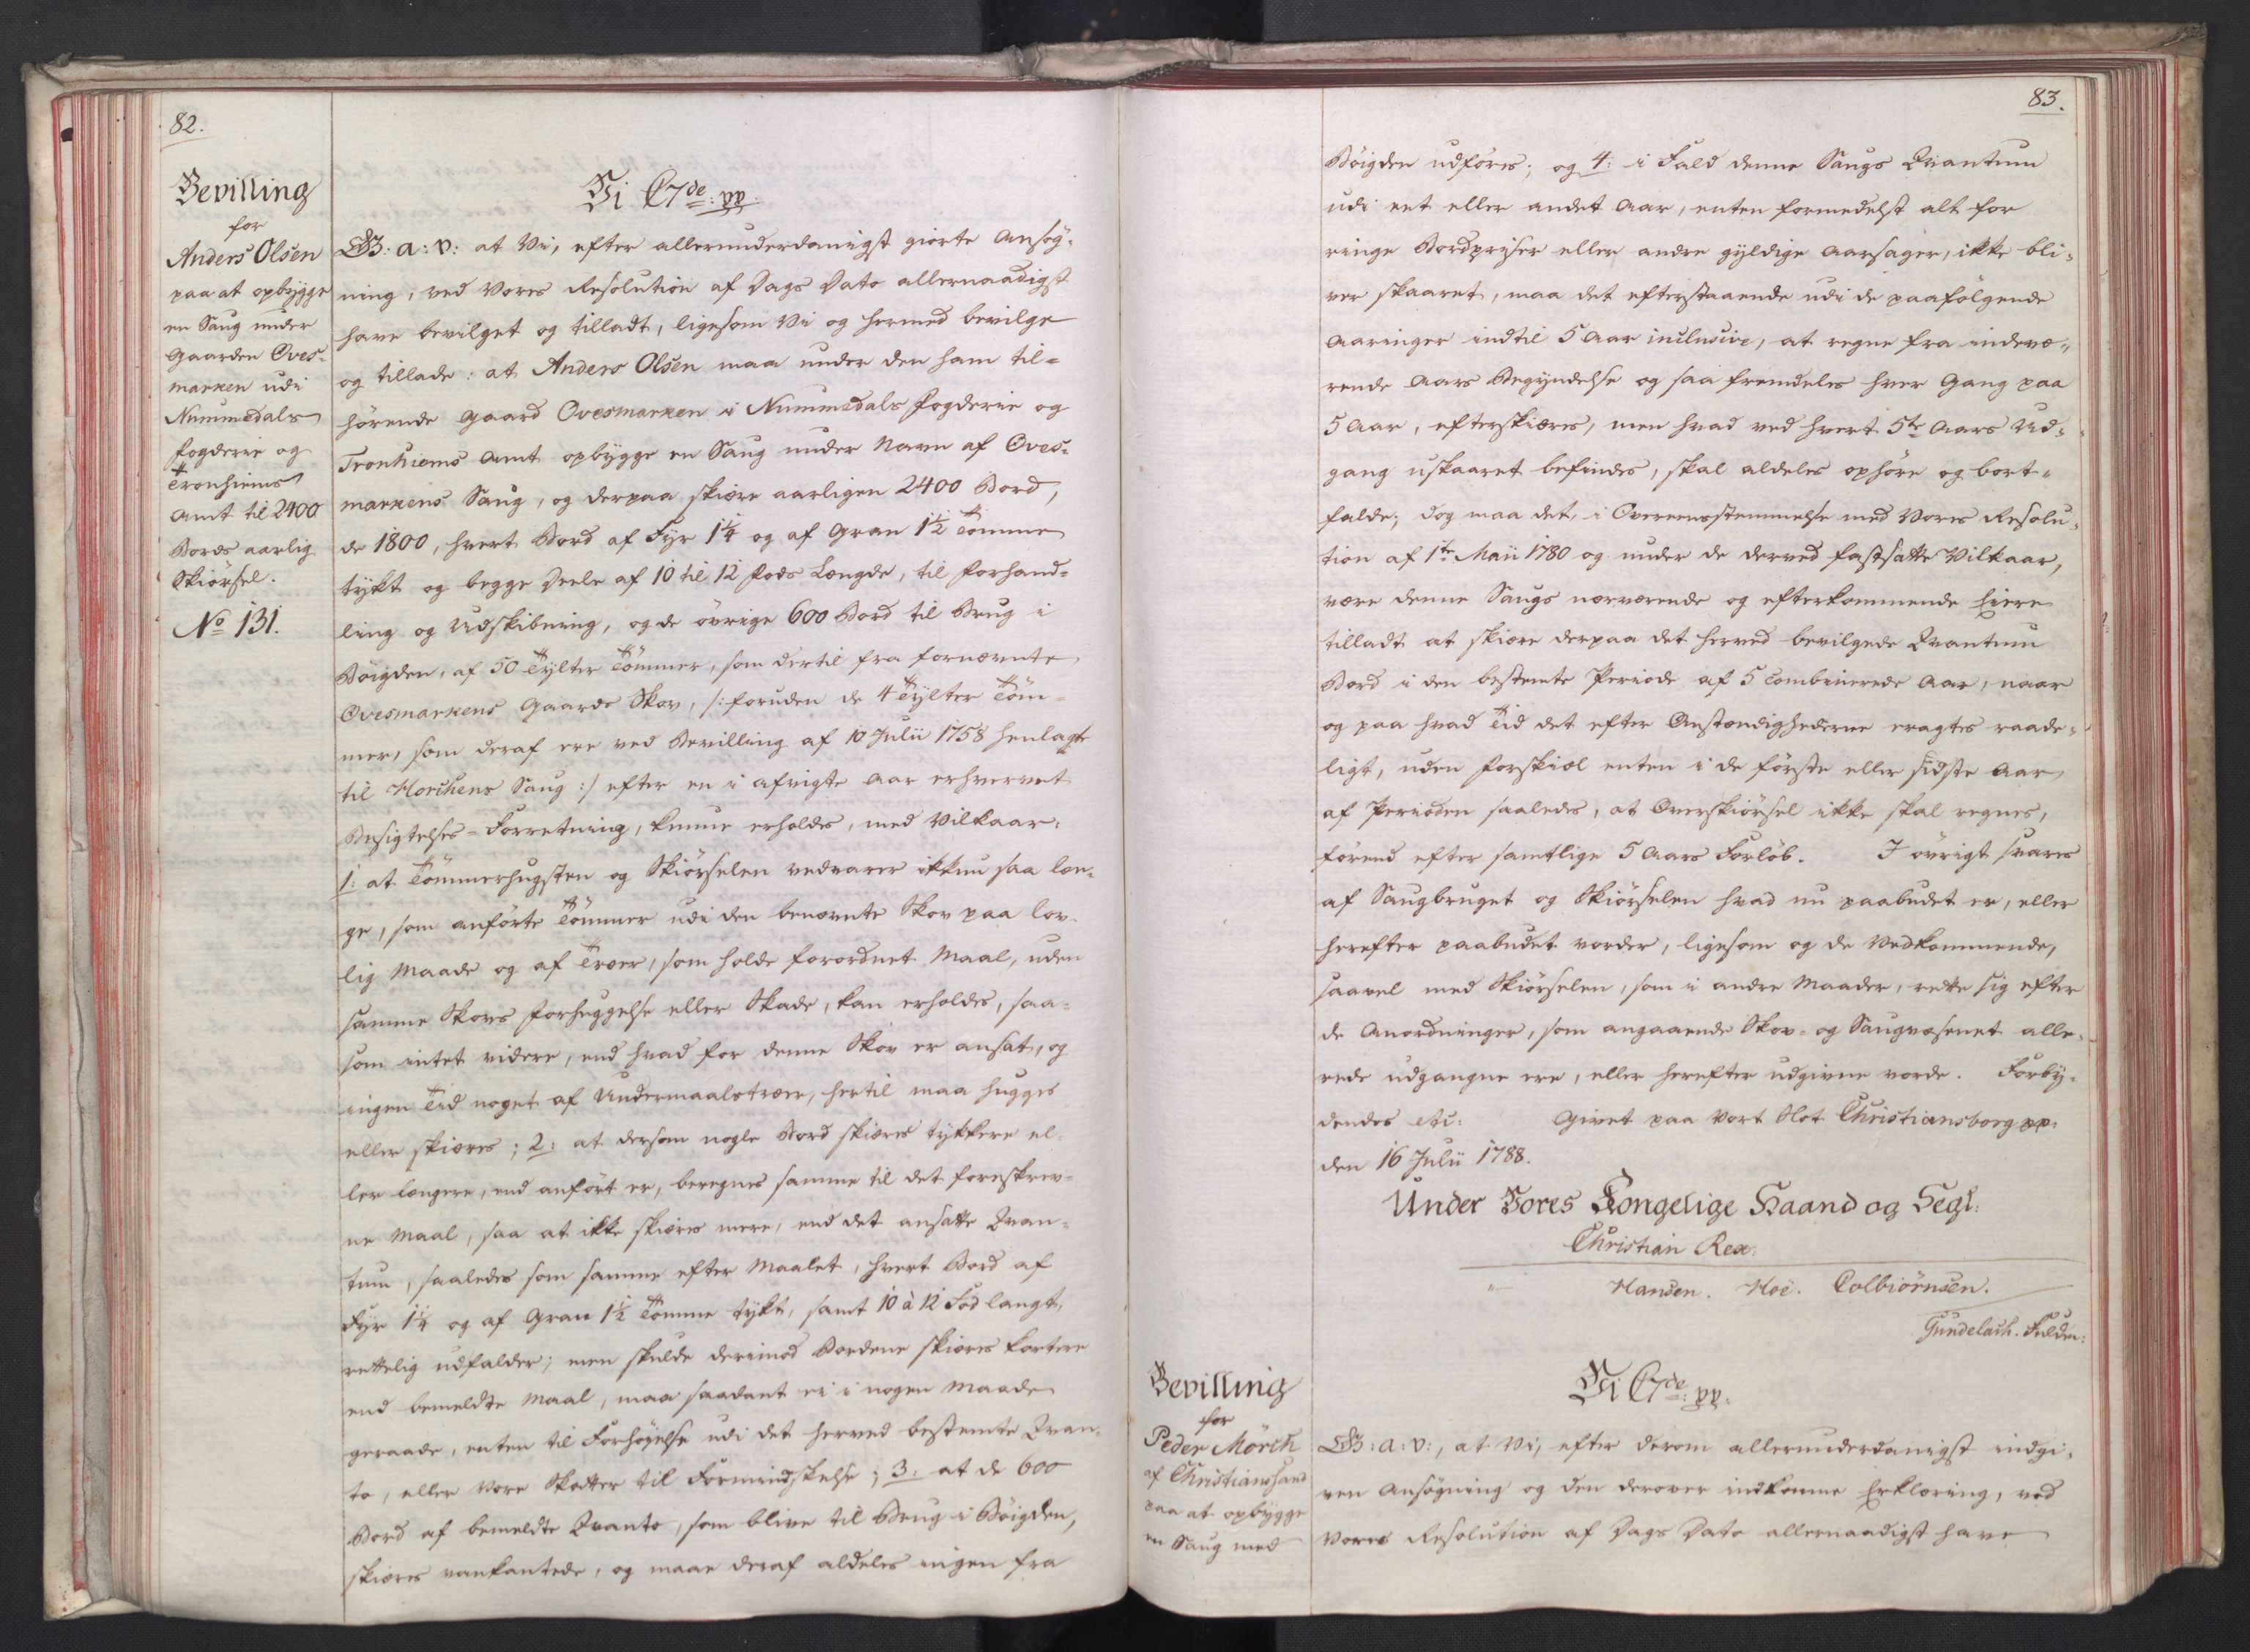 82.
Bevilling
for
Anders Olsen
paa at opbygge
en Saug under
Gaarden Oves-
marken udi
Nummedals
fogderie og
Tronhiems
Amt til 2400
Bords aarlig
Skiørsel.
No 131.
Vi C7de: pp.
G: a: v: at Vi, efter allerunderdanigst giorte Ansøg-
ning, ved Vores Resolution af Dags Dato allernaadigst
have bevilget og tilladt, ligesom Vi og hermed bevilge
og tillade: at Anders Olsen maa under den ham til-
hørende Gaard Ovesmarken i Nummedals fogderie og
Tronhiems Amt opbygge en Saug under Navn af Oves-
markens Saug, og derpaa skiøre aarligen 2400 Bord,
de 1800, hvert Bord af Fyr 1¼ og af Gran 1½ Tomme
tykt og begge Deele af 10 til 12 fods Længde, til forhand-
ling og Udskibning, og de øvrige 600 Bord til Brug i
Bøigden, af 50 Tylter Tømmer, som dertil fra fornævnte
Ovesmarkens Gaards Skov, /: foruden de 4 Tylter Tøm-
mer, som deraf ere ved Bevilling af 10 Julii 1758 henlagte
til Horchens Saug :/ efter en i afvigte Aar erhvervet
Besigtelses-Forretning, kunne erholdes, med Vilkaar:
1: at Tømmerhugsten og Skiørselen vedvarer ikkun saa læn-
ge, som anførte Tømmer udi den benævnte Skov paa lov-
lig Maade og af Træer, som holde forordnet Maal, uden
samme Skovs forhuggelse eller Skade, kan erholdes, saa-
som intet videre, end hvad for denne Skov er ansat, og
ingen Tid noget af Undermaalstræer, hertil maa hugges
eller skiæres; 2: at dersom nogle Bord skiæres tykkere el-
ler længere, end anført er, beregnes samme til det foreskrev-
ne Maal, saa at ikke skiæres mere, end det ansatte Qvan-
tum, saaledes som samme efter Maalet, hvert Bord af
Fyr 1¼ og af Gran 1½ Tomme tykt, samt 10 à 12 Fod langt,
rettelig udfalder; men skulde derimod Bordene skiæres kortere
end bemeldte Maal, maa saadant ei i nogen Maade
geraade, enten til Forhøyelse udi det herved bestemte Qvan-
to, eller Vore Skatter til Formindskelse; 3: at de 600
Bord af bemeldte Qvanto, som blive til Brug i Bøigden,
skiæres vankantede, og maae deraf aldeles ingen fra
83.
Bøigden udføres; og 4: i Fald denne Saugs Qvantum
udi eet eller andet Aar, enten formedelst alt for
ringe Bordpriser eller andre gyldige Aarsager, ikke bli-
ver skaaret, maa det efterstaaende udi de paafølgende
Aaringer indtil 5 Aar inclusive, at regne fra indevæ-
rende Aars Begyndelse og saa fremdeles hver Gang paa
5 Aar, efterskiæres, men hvad ved hvert 5te Aars Ud-
gang uskaaret befindes, skal aldeles ophøre og bort-
falde; dog maa det, i Overeensstemmelse med Vores Resolu-
tion af 1te Maii 1780 og under de derved fastsatte Vilkaar,
være denne Saugs nærværende og efterkommende Eiere
tilladt at skiære derpaa det herved bevilgede Qvantum
Bord i den bestemte Periode af 5 combinerede Aar, naar
og paa hvad Tid det efter Omstændighederne eragtes raade-
ligt, uden forskiæl enten i de første eller sidste Aar
af Perioden saaledes, at Overskiørsel ikke skal regnes,
førend efter samtlige 5 Aars Forløb. I øvrigt svares
af Saugbruget og Skiørselen hvad nu paabudet er, eller
herefter paabudet vorder, ligesom og de Vedkommende,
saavel med Skiørselen, som i andre Maader, rette sig efter
de Anordninger, som angaaende Skov- og Saugvæsenet alle-
rede udgangne ere, eller herefter udgivne vorde. Forby-
dendes etc: Givet paa Vort Slot Christiansborg pp:
den 16 Julii 1788.
Under Vores Kongelige Haand og Segl.
Christian Rex.
Hansen. Hoë. Colbiørnsen.
Gundelach.
Bevilling
for
Peder Mörch
af Christiansand
paa at opbygge
en Saug med
Vi C7de: pp.
G: a: v:, at Vi, efter derom allerunderdanigst indgi-
ven Ansøgning og den derover indkomne Erklæring, ved
Vores Resolution af Dags Dato allernaadigst have